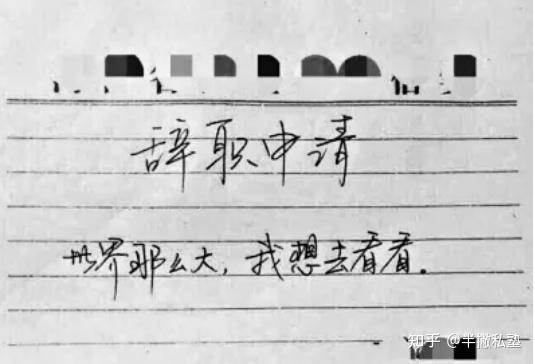 辞职申请
世界那么大，我想去看看。
知乎 @半撇私塾